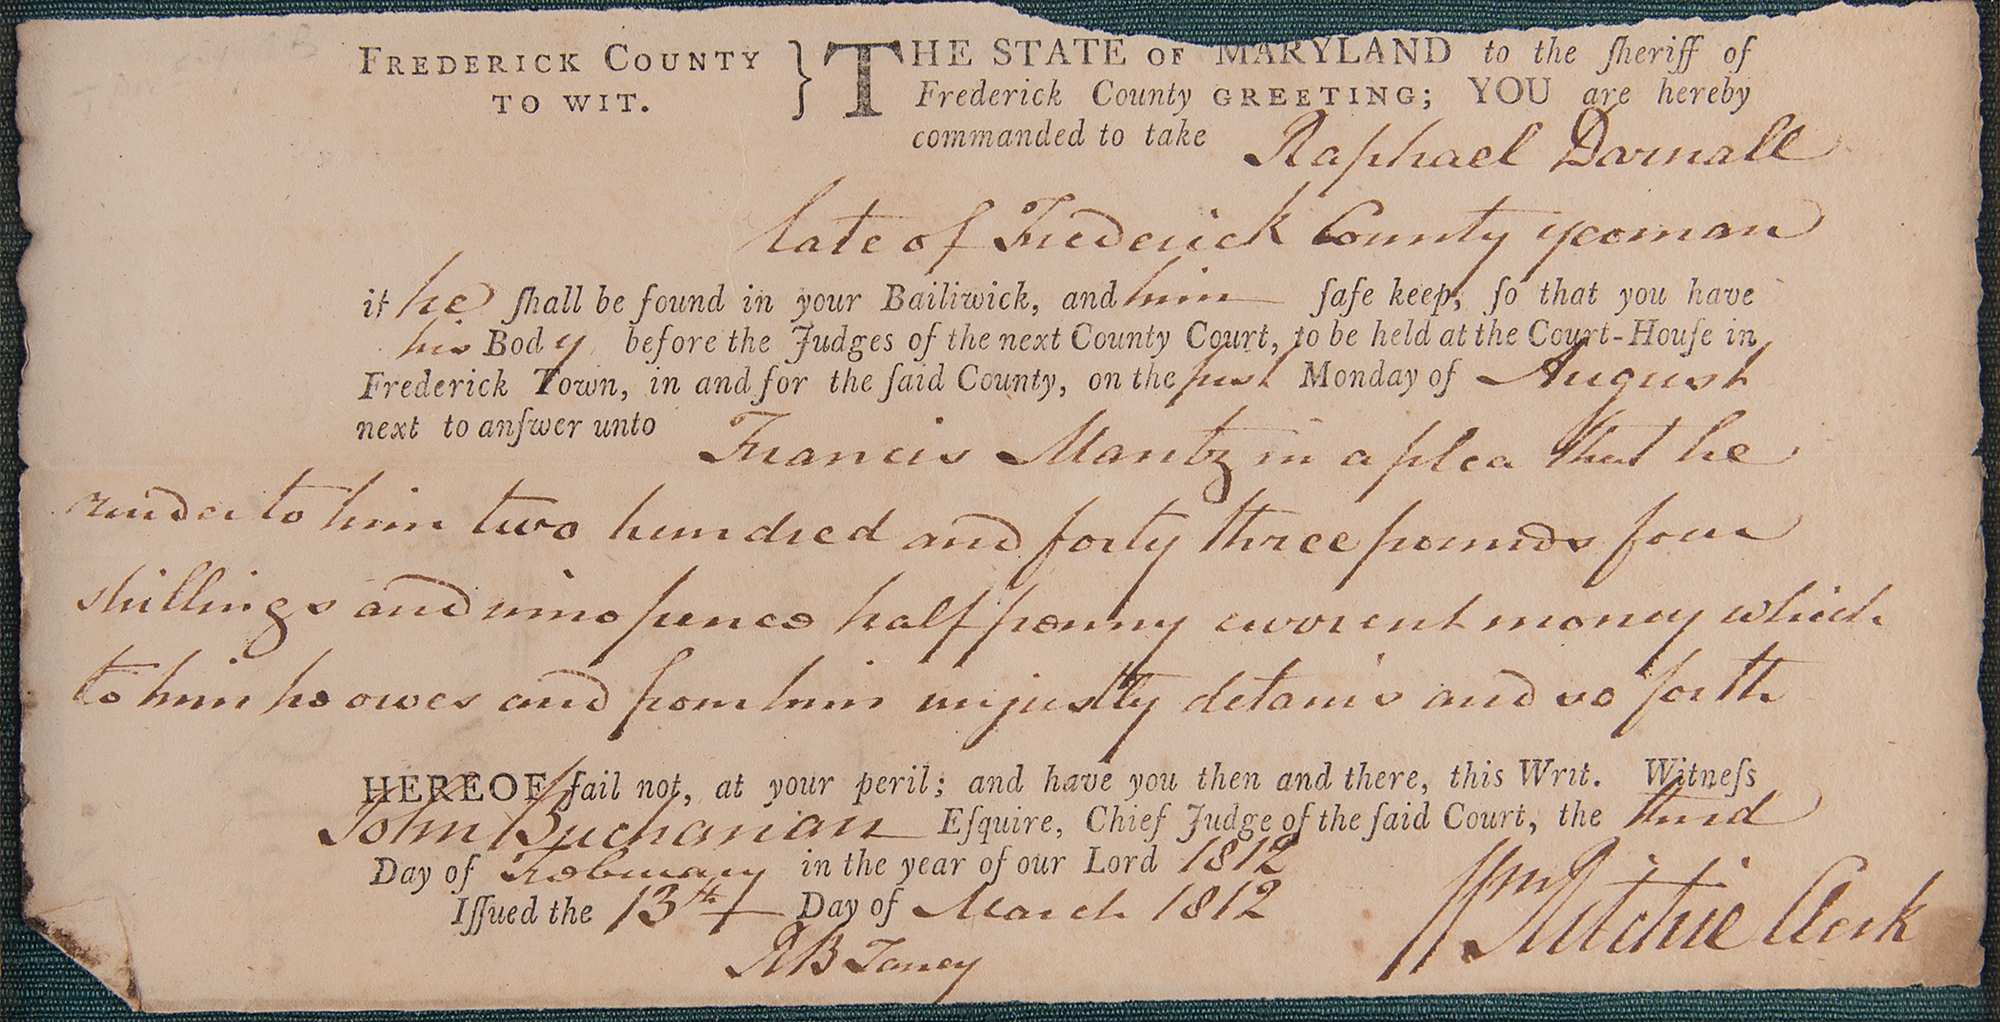 FREDERICK COUNTY } THE STATE OF MARYLAND to the ſheriff of
TO WIT. Frederick County GREETING; YOU are hereby
commanded to take Raphael Darnall
late of Frederick County yeoman
if he ſhall be found in your Bailiwick, and him ſafe keep, ſo that you have
his Body before the Judges of the next County Court, to be held at the Court-Houſe in
Frederick Town, in and for the ſaid County, on the first Monday of August
next to anſwer unto Francis Mantz in a plea that he
render to him two hundred and forty three pounds four
shillings and nine pence half penny current money which
to him he owes and from him unjustly detains and so forth
HEREOF fail not, at your peril; and have you then and there, this Writ. Witneſs
John Buchanan Eſquire, Chief Judge of the ſaid Court, the third
Day of February in the year of our Lord 1812
Iſſued the 13th Day of March 1812
Wm Ritchie Clerk
RB Taney